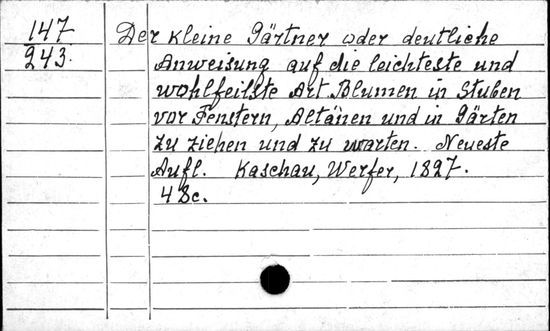 147 Der kleine Gärtner oder deutliche
243. Anweisung auf die leichteste und
wohlfeilste Art Blumen in Stuben
vor Fenstern, Altänen und in Gärten
zu ziehen und zu warten. Neueste
Aufl. Kaschau, Werfer, 1827.
48c.